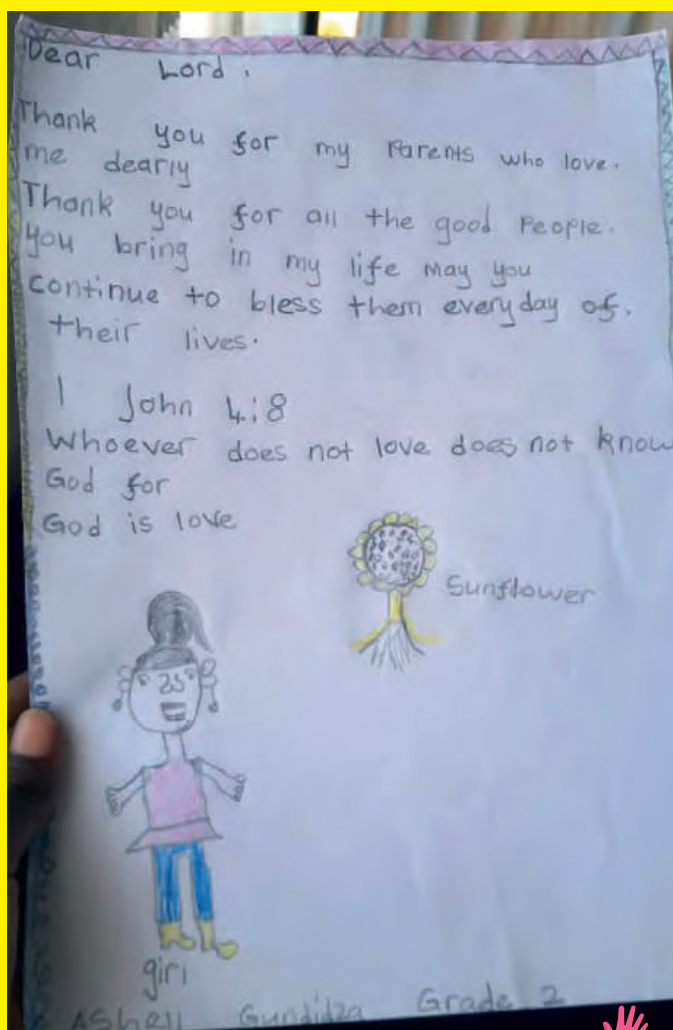 Dear Lord.
Thank you for my Parents who love.
me dearly
Thank you for all the good People.
you bring in my life May you
continue to bless them everyday of.
their lives.
1 John 4:8
Whoever does not love does not know
God for
God is love
Sunflower
girl
AShell Gundidza Grade 2